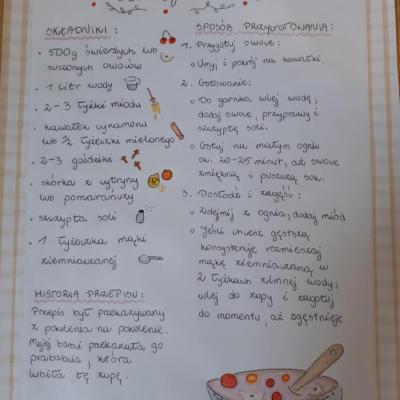 SKŁADNIKI:
• 500g świeżych lub
suszonych owoców
• 1 litr wody
• 2-3 łyżki miodu
• kawałek cynamonu
lub ½ łyżeczki mielonego
• 2-3 goździki
• skórka z cytryny
lub pomarańczy
• szczypta soli
• 1 łyżeczka mąki
ziemniaczanej
HISTORIA PRZEPISU:
Przepis był przekazywany
z pokolenia na pokolenie.
Mojej babci przekazała go
prababcia, która
lubiła tę zupę.
SPOSÓB PRZYGOTOWANIA:
1. Przygotuj owoce:
○ Umyj i pokrój na kawałki.
2. Gotowanie:
○ Do garnka wlej wodę,
dodaj owoce, przyprawy i
szczyptę soli.
○ Gotuj na małym ogniu
ok. 20-25 minut, aż owoce
zmiękną i puszczą sok.
3. Dosłodź i zagęść:
○ Zdejmij z ognia, dodaj miód
○ Jeśli chcesz gęstszą
konsystencję rozmieszaj
mąkę ziemniaczaną w
2 łyżkach zimnej wody,
wlej do zupy i zagotuj
do momentu, aż zgęstnieje